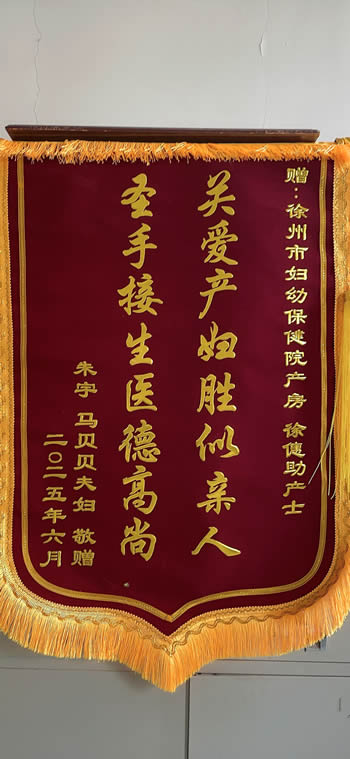 赠：徐州市妇幼保健院产房 徐倢助产士
关爱产妇胜似亲人
圣手接生医德高尚
朱宇 马贝贝夫妇 敬赠
二〇二五年六月